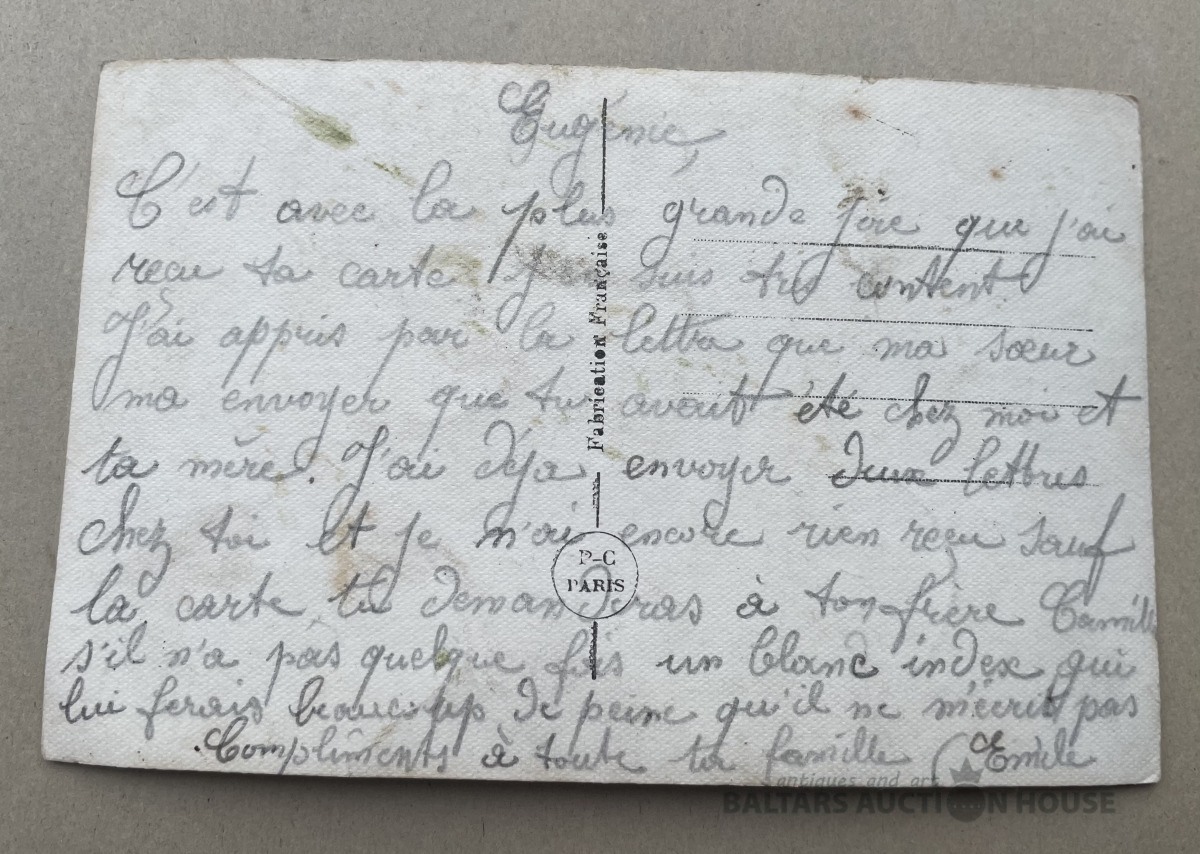 Eugénie,
C'est avec la plus grande joie que j'ai
reçu ta carte suis très content
J'ai appris par la lettra que ma sœur
ma envoyer que tu avait été chez moi et
ta mère. J'ai déja envoyer deux lettres
chez toi et je n'ai encore rien reçu sauf
la carte, tu demanderas à ton frère Camille
s'il n'a pas quelque fois un blanc index qui
lui ferais beaucoup de peine qu'il ne m'écrit pas
Compliments à toute ta famille Emile
Fabrication Française
P-C
PARIS
antiques and art
BALTARS AUCTION HOUSE